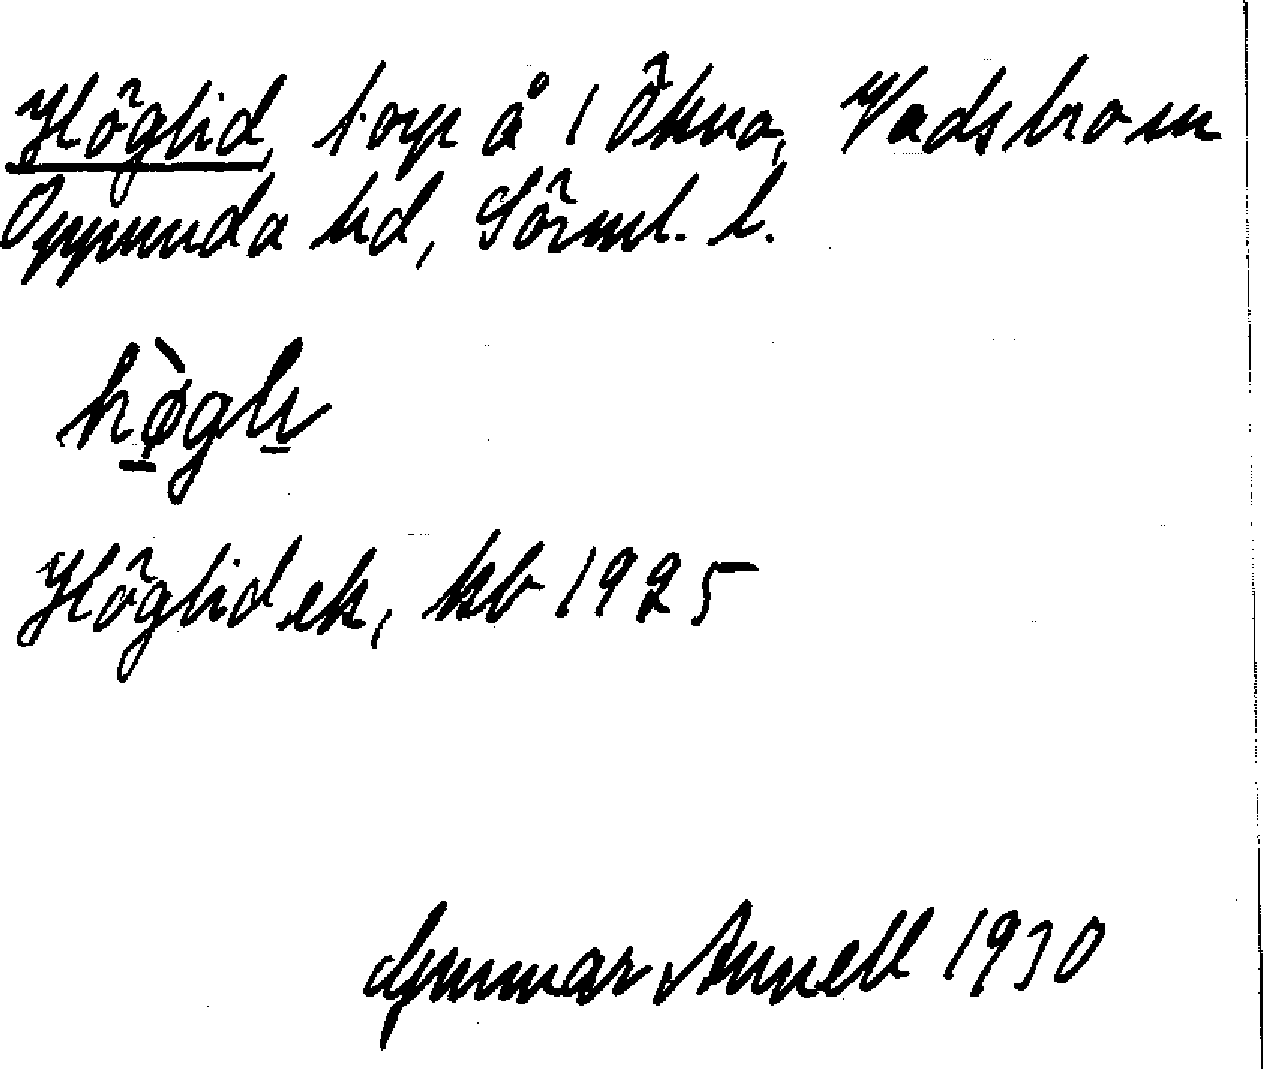 Höglid, torp å 1 Ökna, Vadsbro sn
Oppunda hd, Sörml. l.
hø̀gli
Höglid ek, kb 1925
Gunnar Annell 1930